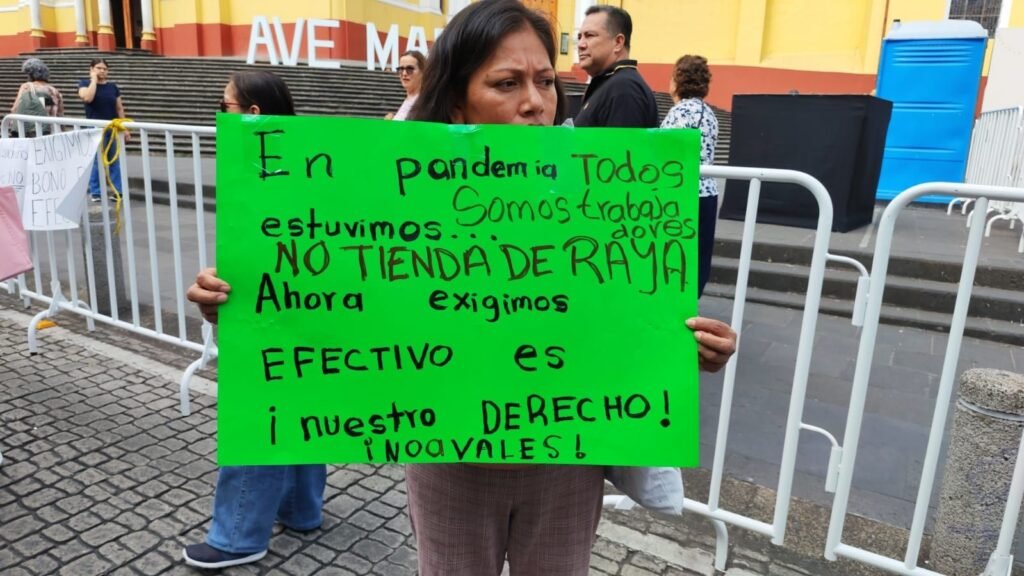 AVE MA
EXIGIMO
BONO
EFE
En pandemia Todos
estuvimos... Somos trabaja
dores
NO TIENDA DE RAYA
Ahora exigimos
EFECTIVO es
¡nuestro DERECHO!
¡NO a VALES!